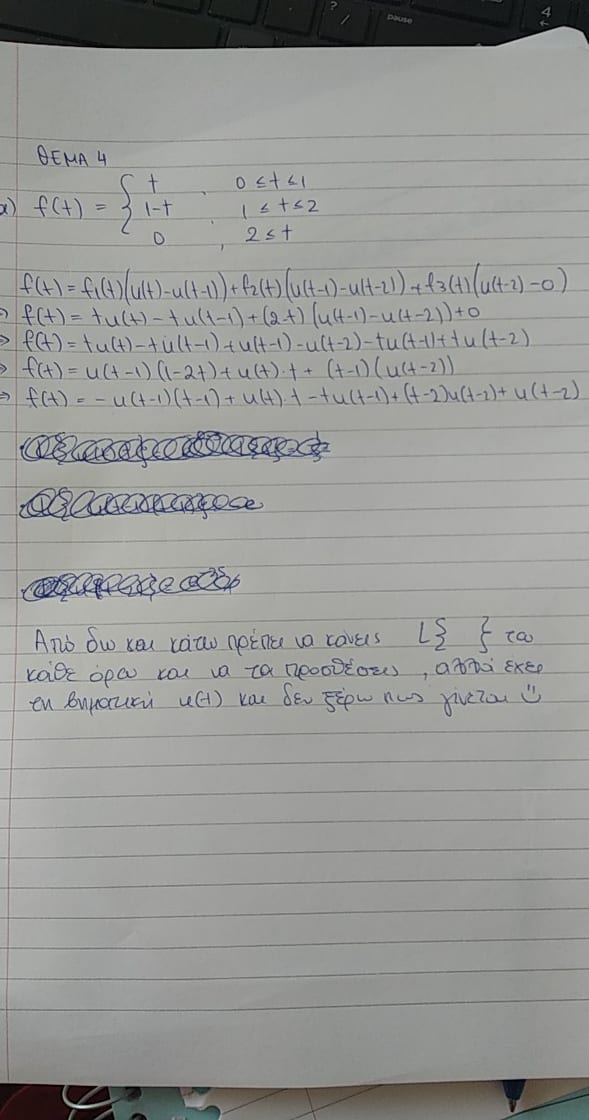 ?
/
pause
4
←
ΘΕΜΑ 4
α) f(t) = { t , 0 ≤ t ≤ 1
1-t , 1 ≤ t ≤ 2
0 , 2 ≤ t
f(t) = f1(t)(u(t)-u(t-1))+f2(t)(u(t-1)-u(t-2))+f3(t)(u(t-2)-0)
⇒ f(t) = tu(t) - tu(t-1)+(2-t)(u(t-1)-u(t-2))+0
⇒ f(t) = tu(t)-tu(t-1)+u(t-1)-u(t-2)-tu(t-1)+tu(t-2)
⇒ f(t) = u(t-1)(1-2t)+u(t)·t+(t-1)(u(t-2))
⇒ f(t) = -u(t-1)(t-1)+u(t)·t-tu(t-1)+(t-2)u(t-2)+u(t-2)
Από δω και κάτω πρέπει να κάνεις L{ } του
κάθε όρου και να τα προσθέσεις, αλλά έχει
τη βηματική u(t) και δεν ξέρω πως γίνεται